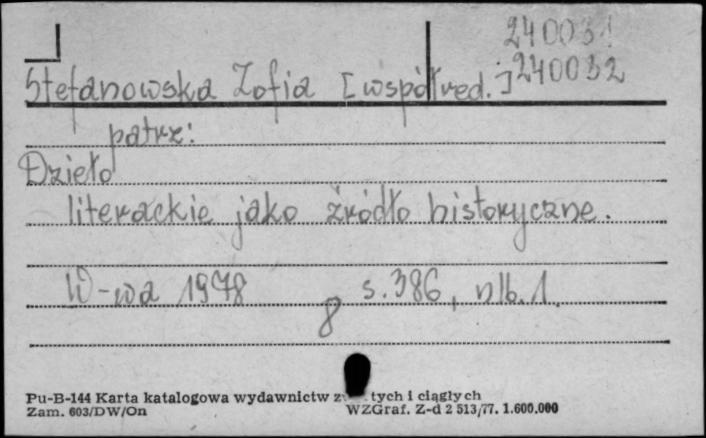 240031
240032
Stefanowska Zofia [współred.]
patrz:
Dzieło
literackie jako źródło historyczne.
W-wa 1978 s. 386, nlb. 1.
8
Pu-B-144 Karta katalogowa wydawnictw tych i ciągłych
Zam. 603/DW/On WZGraf. Z-d 2 513/77. 1.600.000